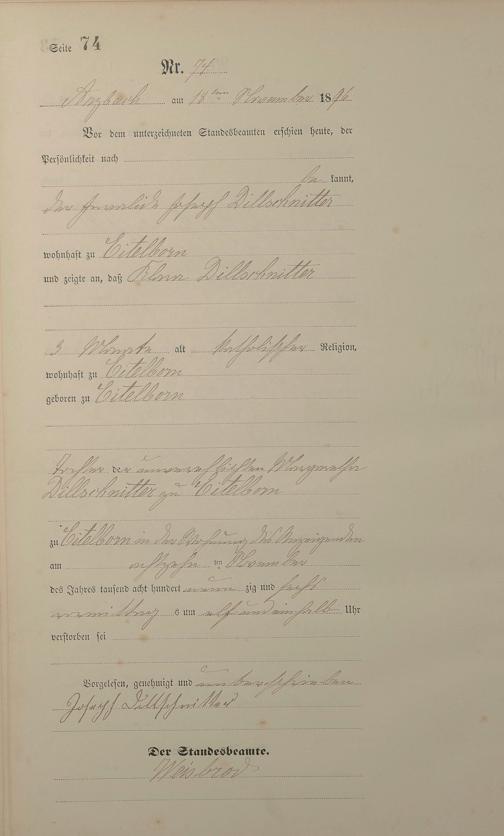 Seite 74
Nr. 74
Arzbach am 18ten November 1896
Vor dem unterzeichneten Standesbeamten erschien heute, der
Persönlichkeit nach
be kannt,
der Invalide Joseph Dillschnitter
wohnhaft zu Eitelborn
und zeigte an, daß Klara Dillschnitter
3 Monate alt katholischer Religion,
wohnhaft zu Eitelborn
geboren zu Eitelborn
Tochter der unverehelichten Margaretha
Dillschnitter zu Eitelborn
zu Eitelborn in der Wohnung des Anzeigenden
am achtzehn ten November
des Jahres tausend acht hundert neun zig und sechs
vormittag s um elf und einhalb Uhr
verstorben sei
Vorgelesen, genehmigt und unterschrieben
Joseph Dillschnitter
Der Standesbeamte.
Weisbrod